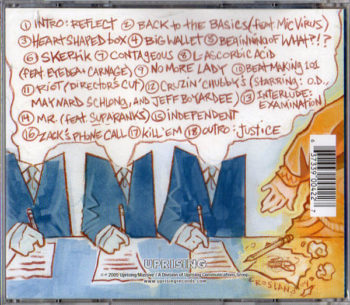 ① INTRO: REFLECT ② BACK TO THE BASICS (feat. MIC VIRUS)
③ HEART SHAPED BOX ④ BIG WALLET ⑤ BEGINNING OF WHAT?!?
⑥ SKERHIK ⑦ CONTAGEOUS ⑧ L-ASCORBIC ACID
(FEAT. EYEDEA & CARNAGE) ⑨ NO MORE LADY ⑩ BEAT MAKING 101
⑪ RIOT (DIRECTOR'S CUT) ⑫ CRUZIN' CHUBBY'S (STARRING: O.D.,
MAYNARD SCHLONG, AND JEFF BOYARDEE) ⑬ INTERLUDE:
EXAMINATION
⑭ MR. (FEAT. SUPARANKS) ⑮ INDEPENDENT
⑯ ZACK'S PHONE CALL ⑰ KILL 'EM ⑱ OUTRO: JUSTICE
6 57339 00422 7
EROSLAND
UPRISING
℗ © 2005 Uprising Records / A Division of Uprising Communications Group
www.uprisingrecords.com